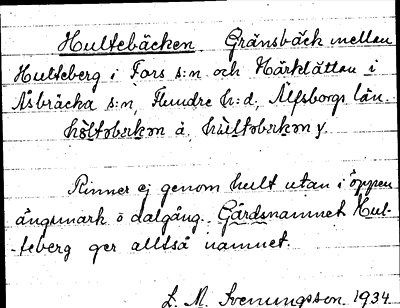 Hultebäcken Gränsbäck mellan
Hulteberg i Fors s:n och Härklättan i
Åsbräcka s:n, Flundre h:d, Älfsborgs län.
Rinner ej genom hult utan i öppen
ängsmark o dalgång. Gårdsnamnet Hul-
-teberg ger alltså namnet.
L. M. Svenungsson 1934